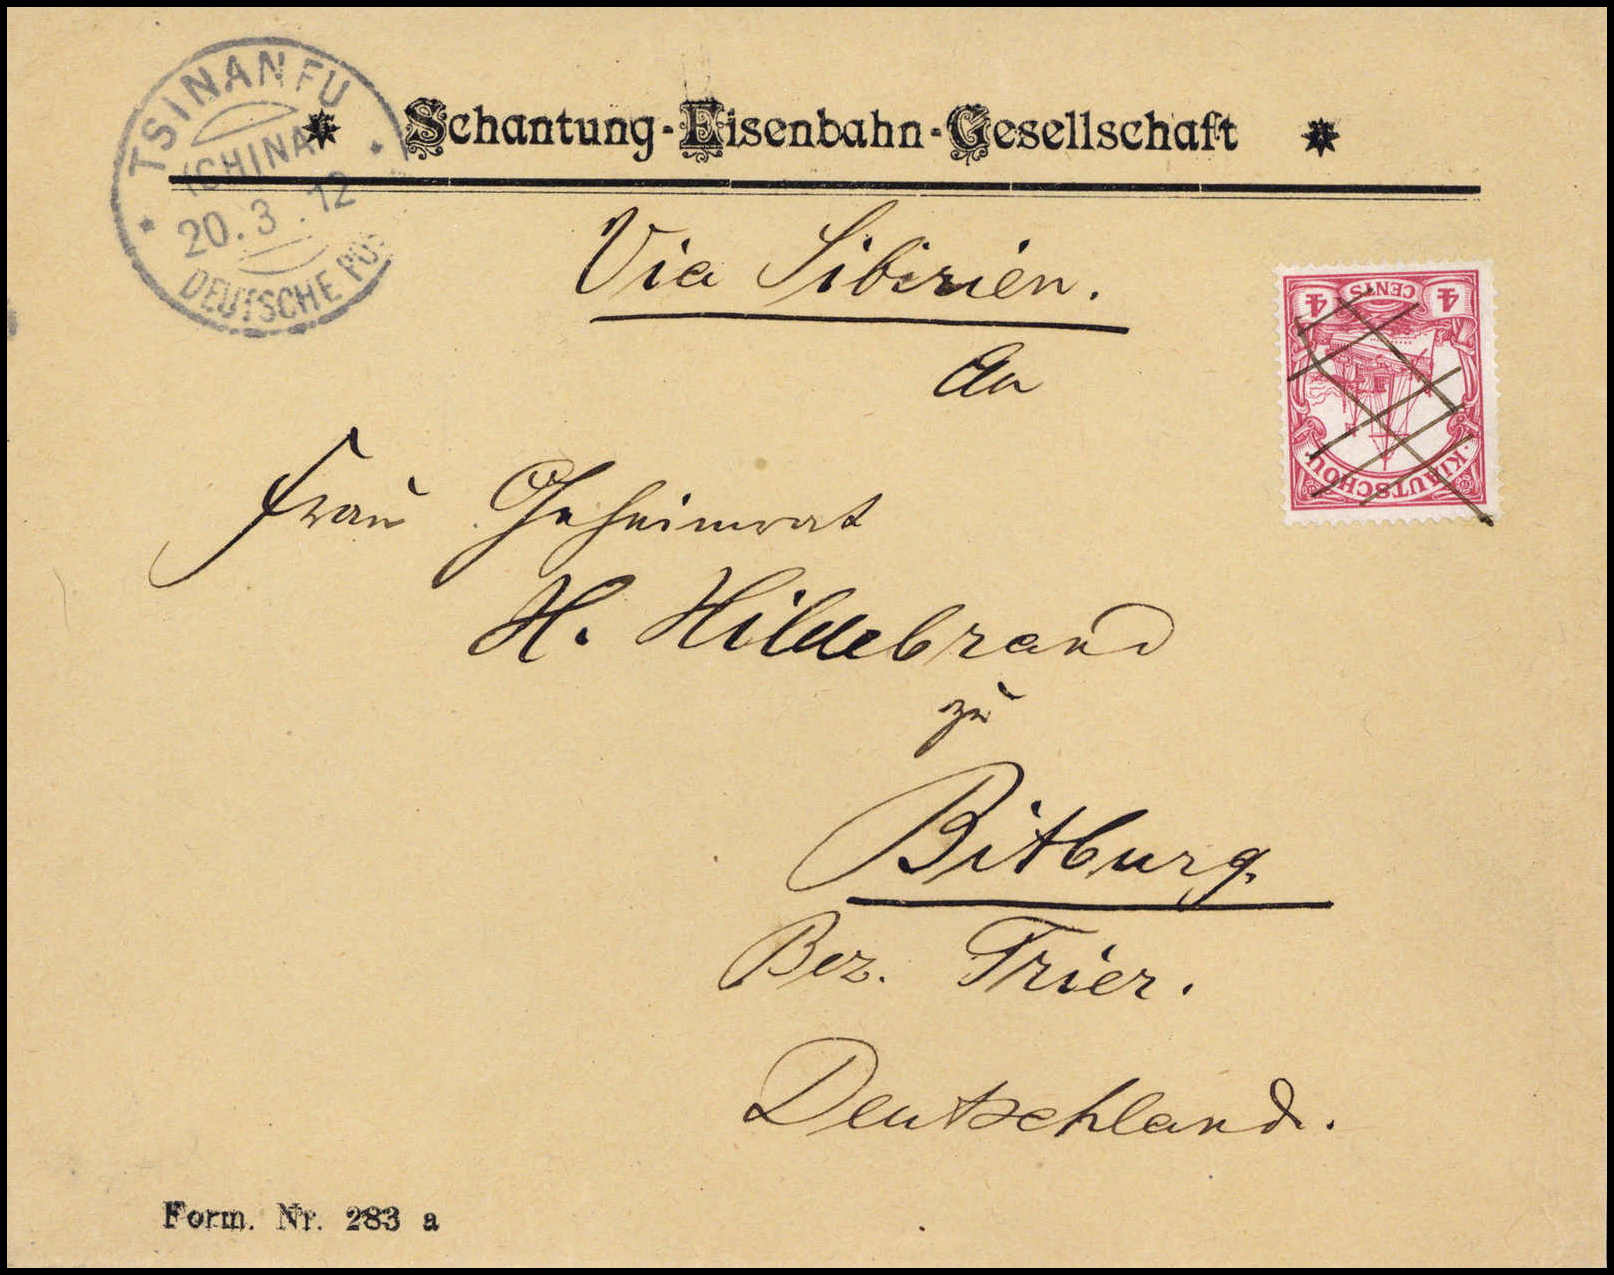 Schantung-Eisenbahn-Gesellschaft
TSINANFU
(CHINA)
20.3.12
DEUTSCHE POS
Via Sibirien.
4 CENTS 4
KIAUTSCHOU
An
Frau Geheimrat
H. Hildebrand
zu
Bitburg.
Bez. Trier.
Deutschland.
Form. Nr. 283 a